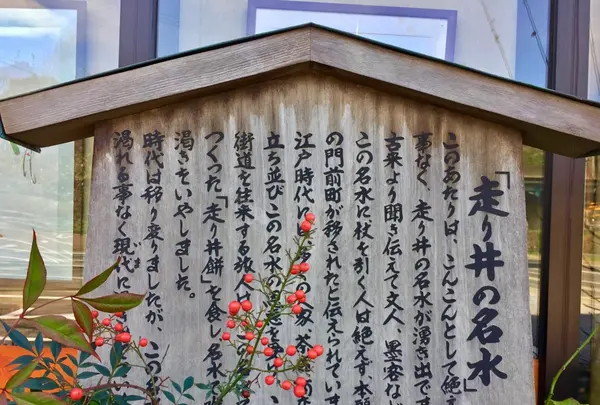 「走り井の名水」
このあたりは、こんこんとして絶え
事なく、走り井の名水が湧き出で
古来より聞き伝えて文人、墨客な
この名水に杖を引く人は絶えず本
の門前町が移されたと伝えられていま
江戸時代に
立ち並びこの名水の
街道を往来する旅人
つくった「走り井餅」を食し名水で
渇きをいやしました。
時代は移り変りましたが、この
渇れる事なく現代に